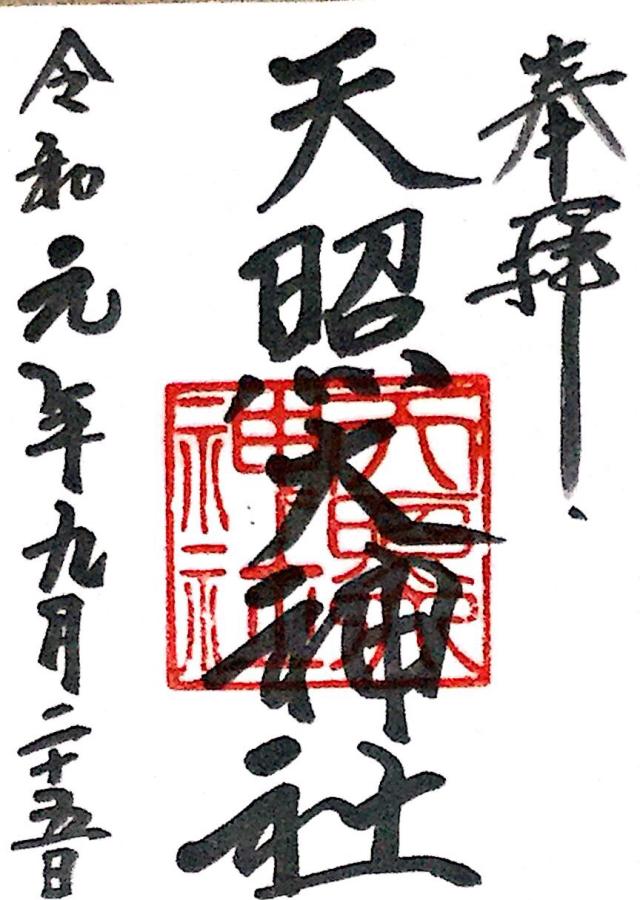 奉拝
天照大神社
令和元年九月二十五日
神社